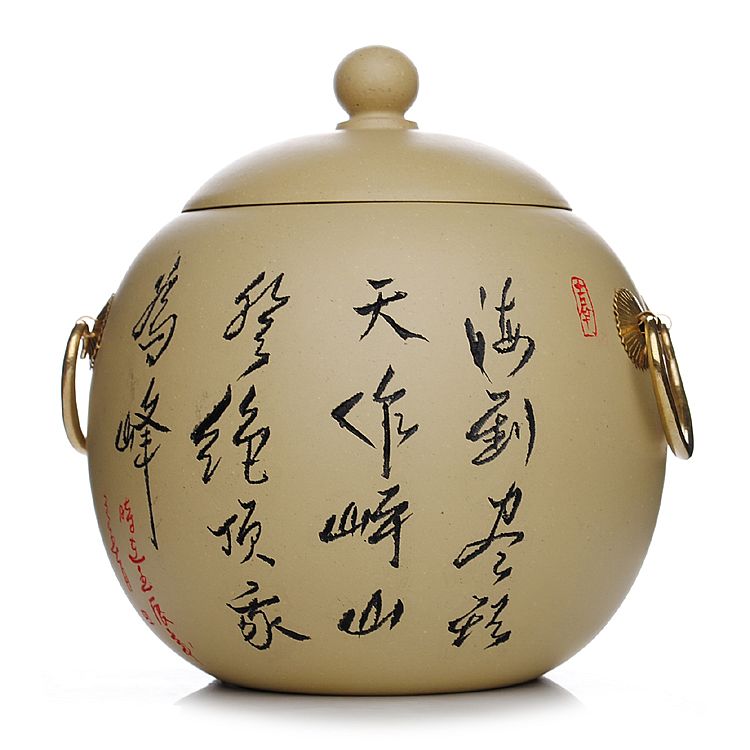 海到尽頭
天作岸山
登绝顶我
為峰